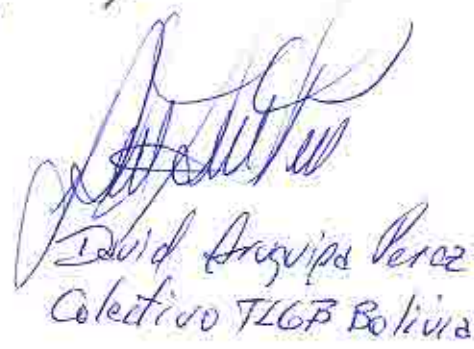 David Aruquipa Perez
Colectivo TLGB Bolivia